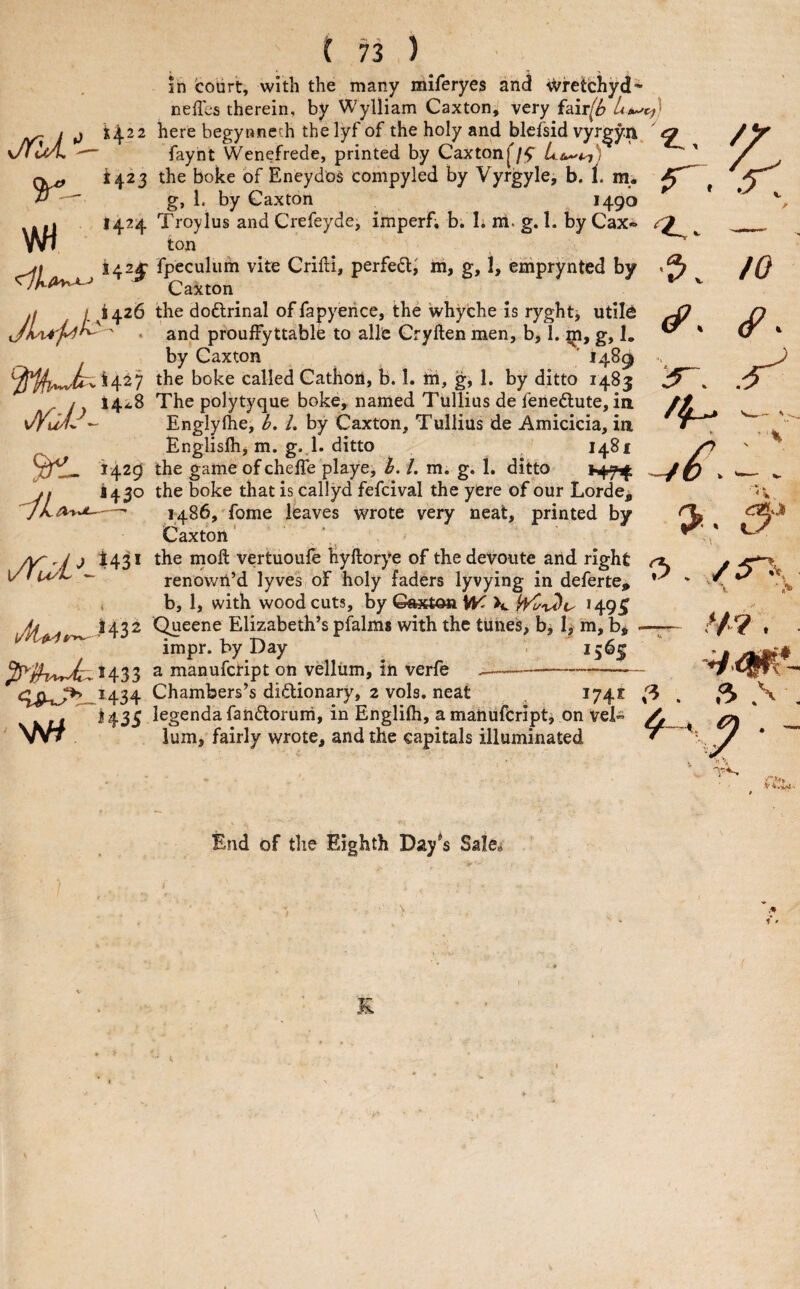 ( 73 )
in court, with the many miſeryes and wretchyd-
neſſes therein, by Wylliam Caxton, very fair
1422 here begynneth the lyf of the holy and bleſsid vyrgyn
ſaynt Wenefrede, printed by Caxton
1423 the boke of Eneydos compyled by Vyrgyle, b. l. m.
g, l. by Caxton 1490
1424 Troylus and Creſeyde, imperf. b. l. m. g. l. by Cax-
ton
1425 ſpeculum vite Criſti, perfect, m, g, l, emprynted by
Caxton
1426 the doctrinal of ſapyence, the whyche is ryght, utile
and prouffyttable to alle Cryſten men, b, l. m, g, l.
by Caxton 1489
1427 the boke called Cathon, b. l. m, g, l. by ditto 1483
1428 The polytyque boke, named Tullius de ſenectute, in
Englyſhe, b. l. by Caxton, Tullius de Amicicia, in
Englisſh, m. g. l. ditto 1481
1429 the game of cheſſe playe, b. l. m. g. l. ditto 1474
1430 the boke that is callyd feſcival the yere of our Lorde,
1486, ſome leaves wrote very neat, printed by
Caxton
1431 the moſt vertuouſe hyſtorye of the devoute and right
renown'd lyves of holy faders lyvying in deſerte,
b, l, with wood cuts, by Caxton W. 1495
1432 Queene Elizabeth's pſalms with the tunes, b, l, m, b,
impr. by Day 1565
1433 a manuſcript on vellum, in verſe
1434 Chambers's dictionary, 2 vols. neat 1741
1435 legenda ſanctorum, in Engliſh, a manuſcript, on vel-
lum, fairly wrote, and the capitals illuminated
End of the Eighth Day's Sale.
K